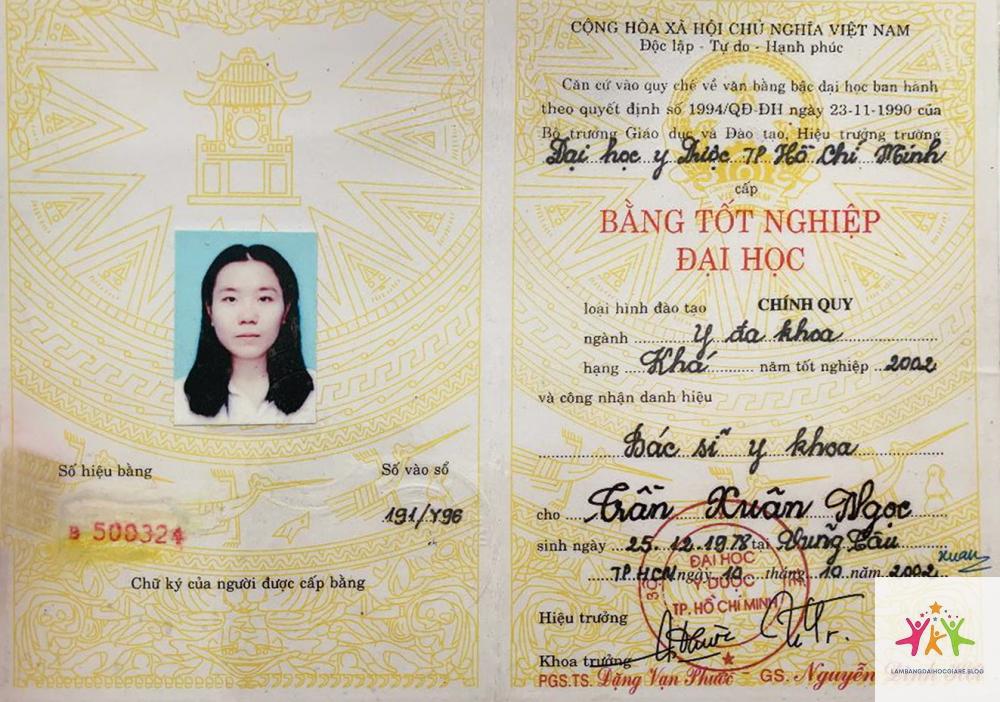 Số hiệu bằng
Số vào sổ
B 500324
191/Y96
Chữ ký của người được cấp bằng
CỘNG HÒA XÃ HỘI CHỦ NGHĨA VIỆT NAM
Độc lập - Tự do - Hạnh phúc
Căn cứ vào quy chế về văn bằng bậc đại học ban hành
theo quyết định số 1994/QĐ-ĐH ngày 23-11-1990 của
Bộ trưởng Giáo dục và Đào tạo, Hiệu trưởng trường
Đại học y Dược TP Hồ Chí Minh
cấp
BẰNG TỐT NGHIỆP
ĐẠI HỌC
loại hình đào tạo CHÍNH QUY
ngành Y đa khoa
hạng Khá năm tốt nghiệp 2002
và công nhận danh hiệu
Bác sĩ y khoa
cho Trần Xuân Ngọc
sinh ngày 25.12.1978 tại Vũng Tàu
TP.HCM ngày 10 tháng 10 năm 2002
xuan
ĐẠI HỌC
Y DƯỢC
TP. HỒ CHÍ MINH
Hiệu trưởng
Khoa trưởng
PGS.TS. Đặng Vạn Phước - GS. Nguyễn
LAMBANGDAIHOCGIARE.BLOG